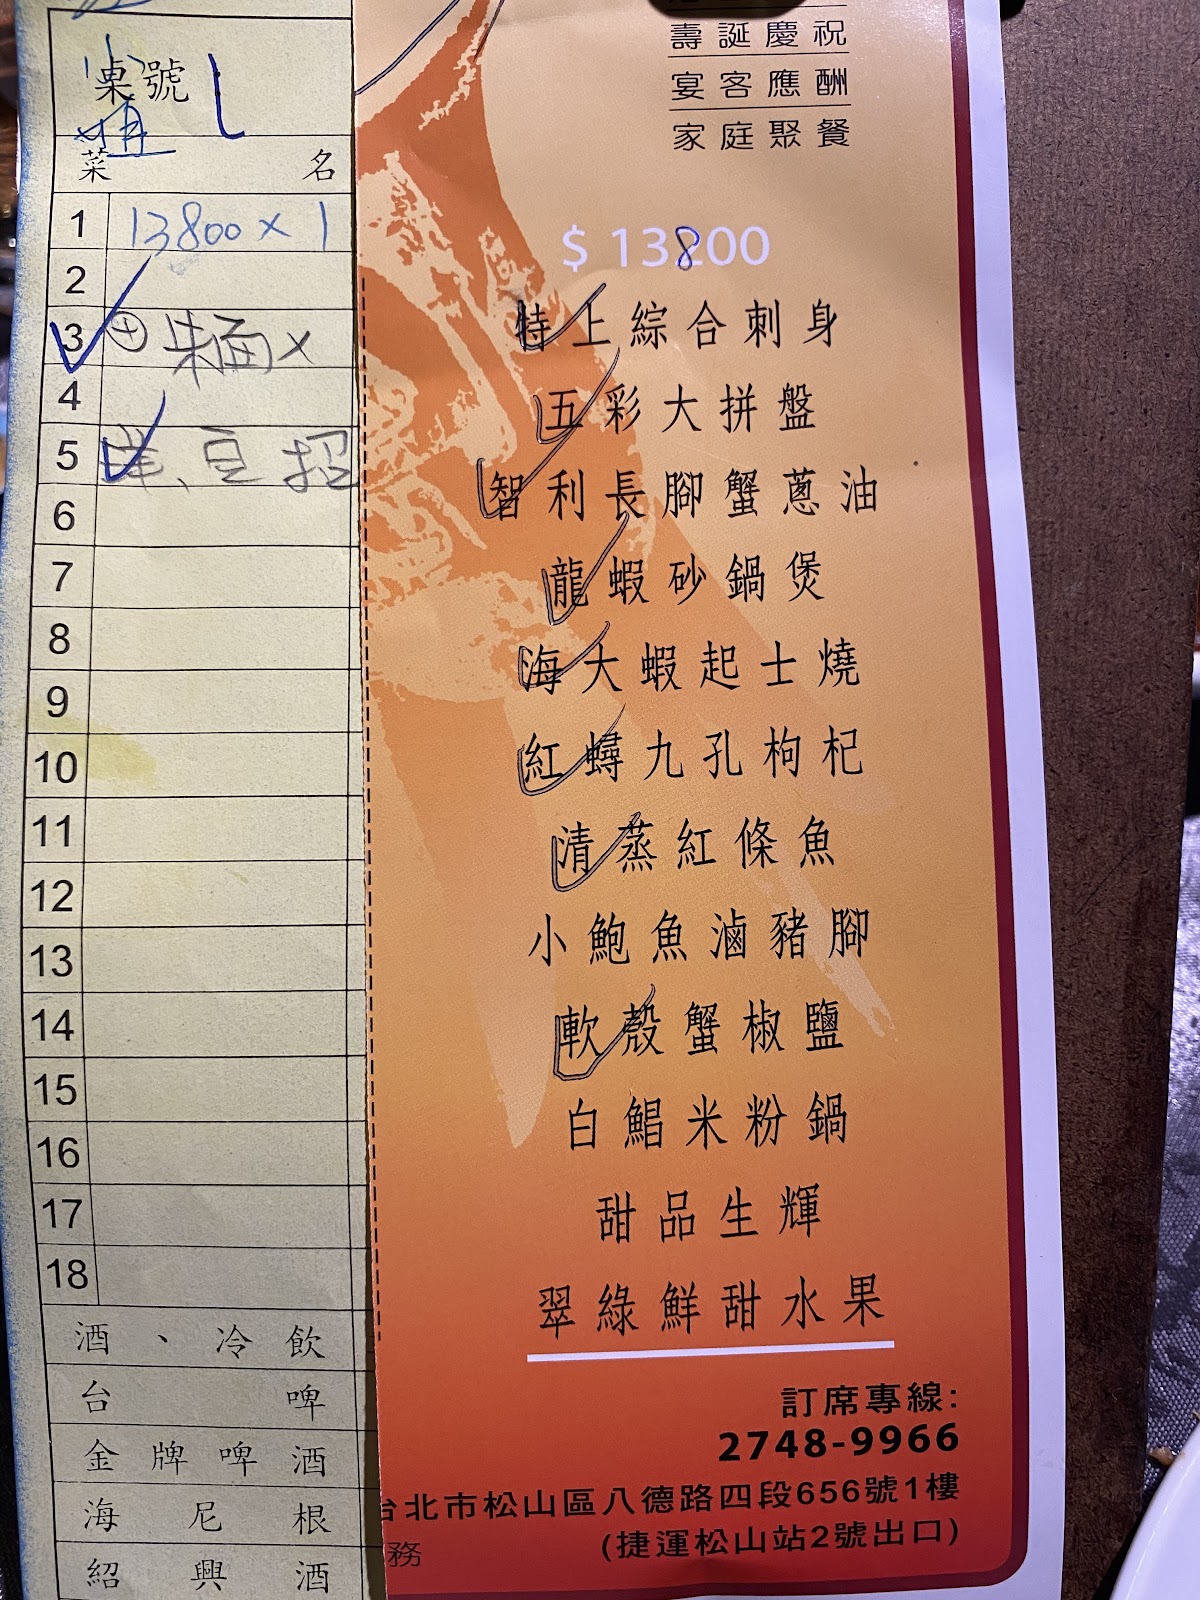 桌號
菜 名
1 13800 x 1
2
3
4
5
6
7
8
9
10
11
12
13
14
15
16
17
18
酒、冷飲
台 啤
金牌啤酒
海尼根
紹興酒
務
壽誕慶祝
宴客應酬
家庭聚餐
$ 13800
特上綜合刺身
五彩大拼盤
智利長腳蟹蔥油
龍蝦砂鍋煲
海大蝦起士燒
紅蟳九孔枸杞
清蒸紅條魚
小鮑魚滷豬腳
軟殼蟹椒鹽
白鯧米粉鍋
甜品生輝
翠綠鮮甜水果
訂席專線:
2748-9966
台北市松山區八德路四段656號1樓
(捷運松山站2號出口)